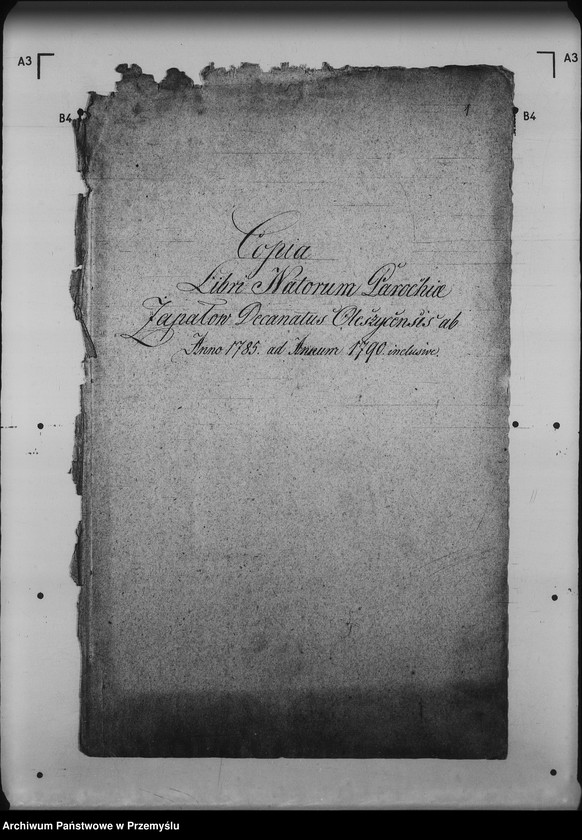 A3
A3
B4
B4
1
Copia
Libri Natorum Parochiæ
Zapałow Decanatus Oleszycensis ab
Anno 1785. ad Annum 1790. inclusive.
Archiwum Państwowe w Przemyślu